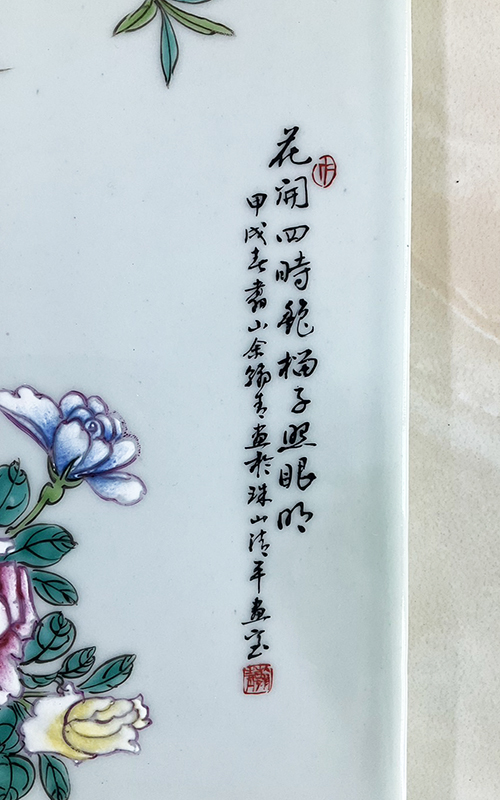 花開四時艷榴子照眼明
甲戌春翥山余翰青畫於珠山清平畫室